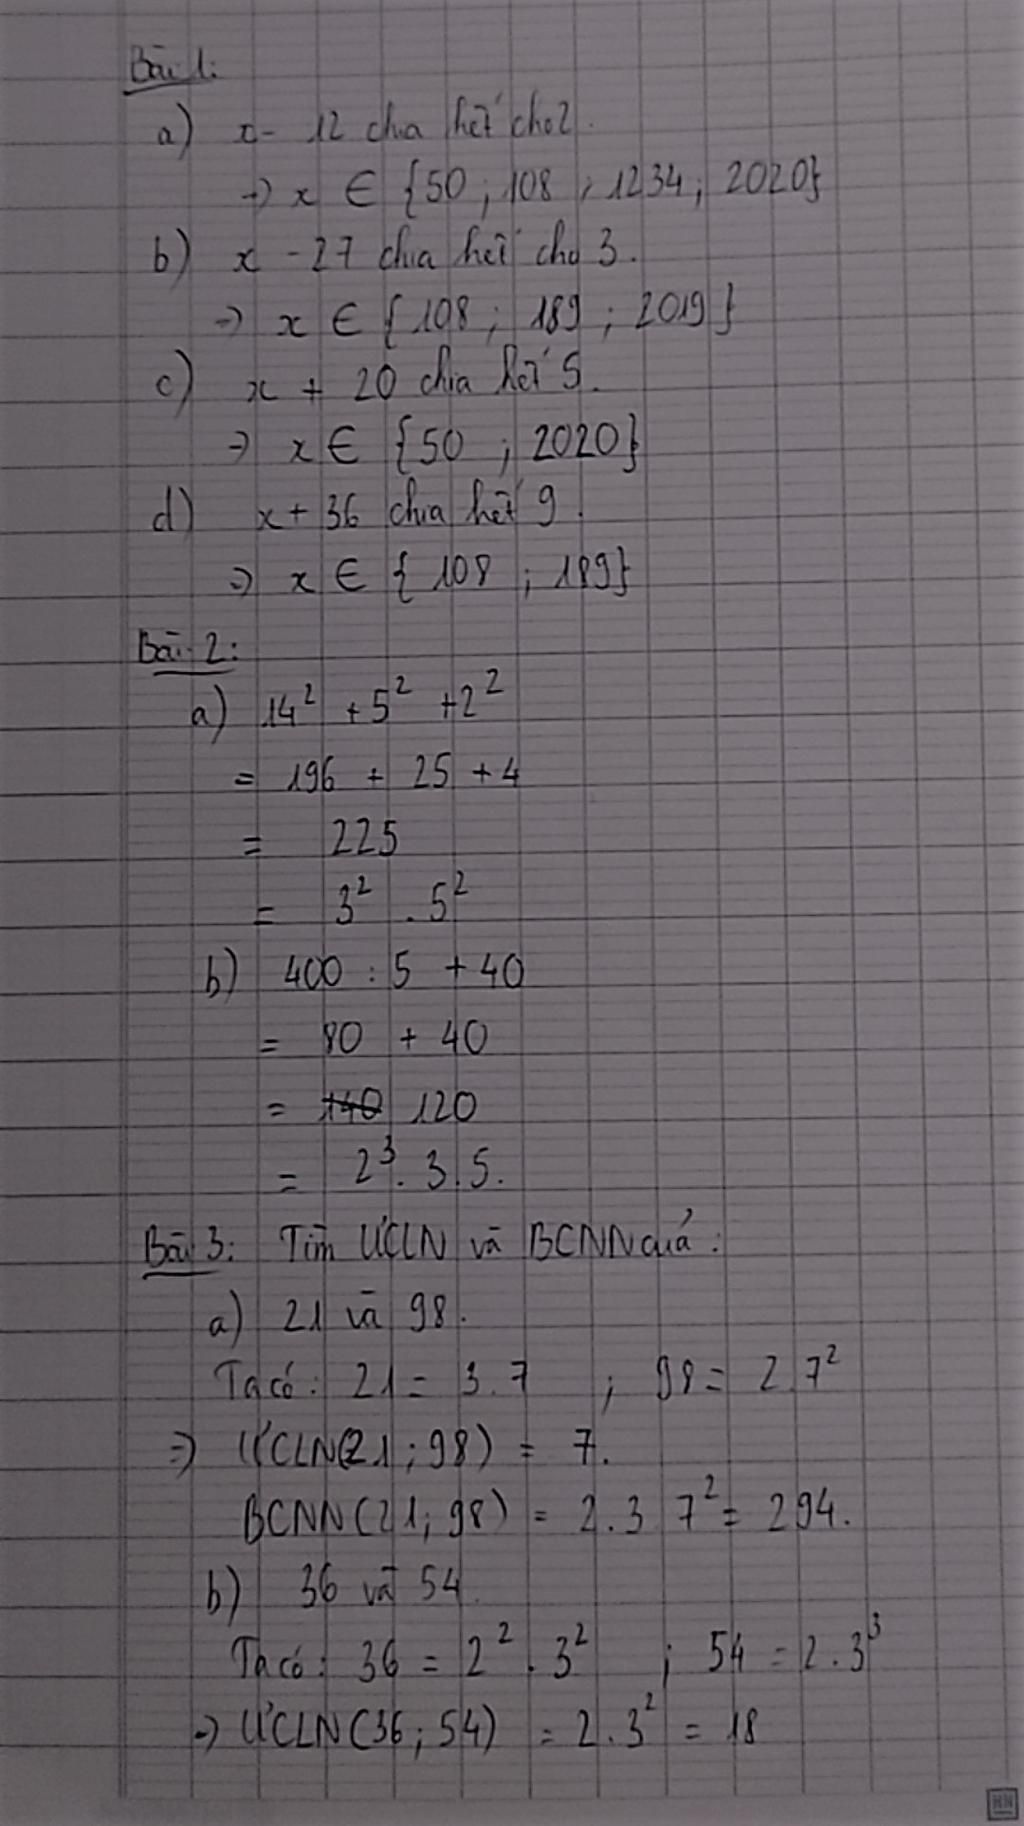 Bài 1:
a) x - 12 chia hết cho 2.
→ x ∈ {50 ; 108 ; 1234 ; 2020}
b) x - 27 chia hết cho 3.
→ x ∈ {108 ; 189 ; 2019}
c) x + 20 chia hết 5.
→ x ∈ {50 ; 2020}
d) x + 36 chia hết 9.
→ x ∈ {108 ; 189}
Bài 2:
a) 14² + 5² + 2²
= 196 + 25 + 4
= 225
= 3² . 5²
b) 400 : 5 + 40
= 80 + 40
= 140 120
= 2³ . 3 . 5.
Bài 3: Tìm ƯCLN và BCNN của :
a) 21 và 98.
Ta có : 21 = 3 . 7 ; 98 = 2 . 7²
⇒ ƯCLN(21 ; 98) = 7.
BCNN(21 ; 98) = 2 . 3 7² = 294.
b) 36 và 54
Ta có : 36 = 2² . 3² ; 54 = 2 . 3³
→ ƯCLN(36 ; 54) = 2 . 3² = 18
HN